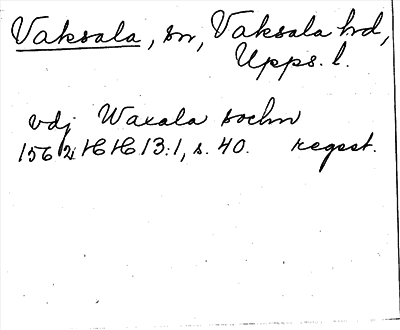 Vaksala, sn, Vaksala hd,
Upps. l.
vdj Waxala sochn
1562 HH 13:1, s. 40. regsst.